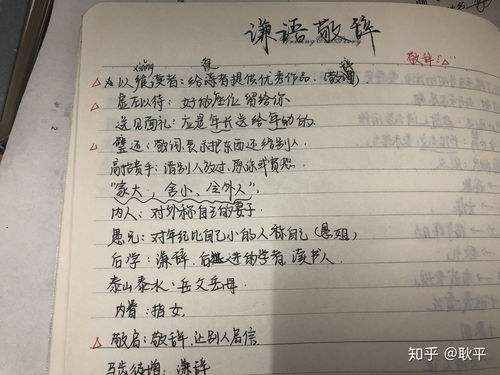 谦语敬辞
敬辞:"△"
xiǎng
△ 以飨读者:给读者提供优秀作品.(敬词)
△ 虚左以待:好的座位留给你
送见面礼:应是年长送给年幼的
△ 璧还:敬词表示把东西还给别人
高抬贵手:请别人放过,原谅或宽恕
"家大,舍小,令外人".
内人:对外称自己的妻子.
愚兄:对年纪比自己小的人称自己(愚姐)
后学:谦辞.后进的学者,读书人.
泰山泰水:岳父岳母.
内眷:指女.
△ 敬启:敬辞,让别人启信
马齿徒增:谦辞
知乎 @耿平